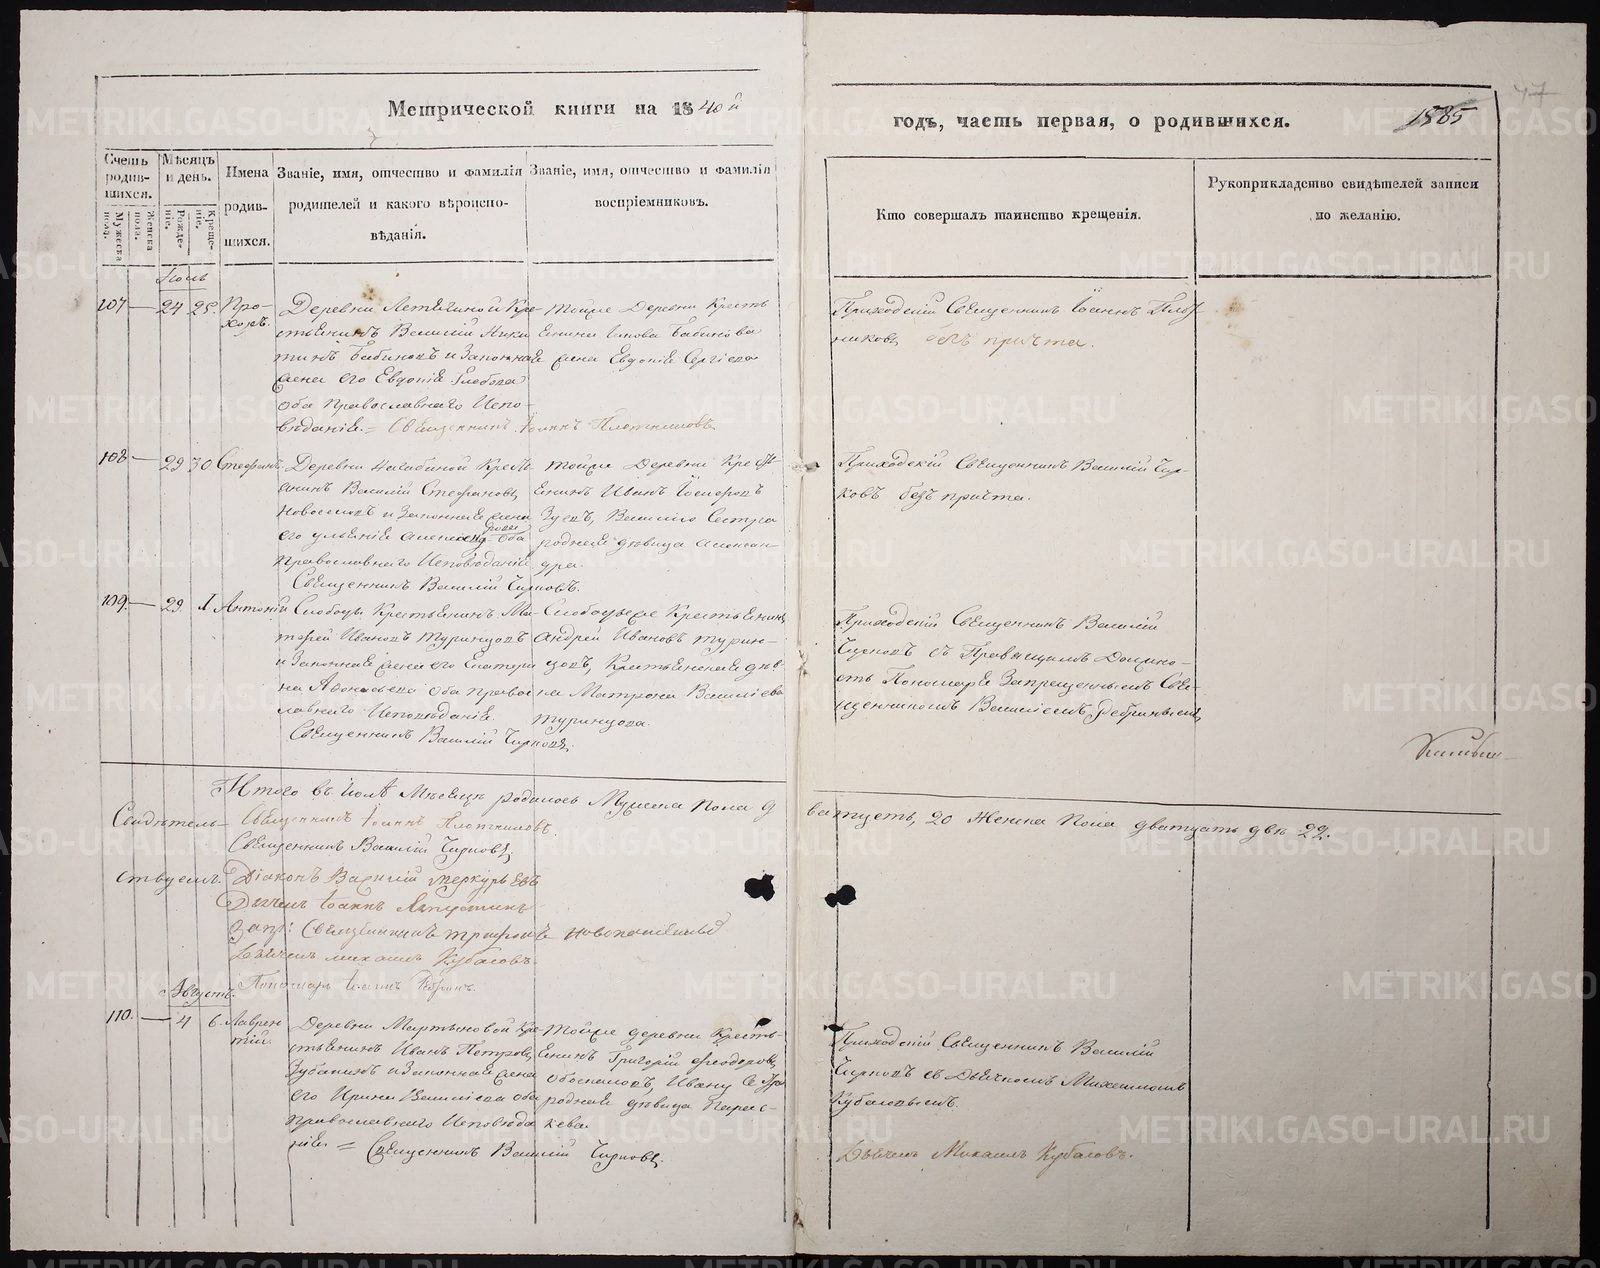 Метрической книги на 1840й
годъ, часть первая, о родившихся.
1885
47
Счетъ родившихся.
Мужеска пола.
Женска пола.
Мѣсяцъ и день.
Рожденіе.
Крещеніе.
Имена родившихся.
Званіе, имя, отчество и фамилія родителей и какого вѣроисповѣданія.
Званіе, имя, отчество и фамилія воспріемниковъ.
Кто совершалъ таинство крещенія.
Рукоприкладство свидѣтелей записи по желанію.
Іюль
107 — 24 25. Про-
хоръ.
Деревни Кре-
стьянинъ Василій Ники
тинъ Бабиновъ и Законная
жена его Евдокія Глебова
оба православнаго Испо-
вѣданія. = Священникъ Іоаннъ Плотниковъ
тойже Деревни Кресть
янина Бабинова
жена Евдокія Сергіева
Приходскій Священникъ Іоаннъ Плот
никовъ безъ причта.
108 — 29 30 Стефанъ.
Деревни Кресть
янинъ Василій Стефановъ
Новоселовъ и Законная жена
его Ульянія оба
православнаго Исповѣданія
Священникъ Василій Чирковъ.
тойже Деревни Кресть
янинъ Иванъ
Зуевъ, Василіо Сестра
родная дѣвица Алексан-
дра.
Приходскій Священникъ Василій Чир-
ковъ безъ причта.
109. — 29 1 Антоній
Слободы Крестьянинъ Ма-
твей Ивановъ Туринцовъ
и Законная жена его Екатери
на оба право
славнаго Исповѣданія.
Священникъ Василій Чирковъ.
Слободы же Крестьянинъ
Андрей Ивановъ Турин-
цовъ, Крестьянская дѣв-
ка Матрона Василіева
Туринцова.
Приходскій Священникъ Василій
Чирковъ съ Правящимъ Должно-
сть Пономаря Запрещеннымъ Свя-
щенникомъ Василіемъ
Итого въ Іюлѣ Мѣсяцѣ родилось Мужеска Пола 20 Женска Пола двадцать двѣ 22.
Свидѣтель-
ствуемъ.
Священникъ Іоаннъ Плотниковъ.
Священникъ Василій Чирковъ.
Діаконъ Василій Меркурьевъ
Дьячекъ Іоаннъ
Запр: Священникъ
Дьячекъ Михаилъ Кубасовъ.
Пономарь Іоаннъ
Августъ.
110. — 4 6. Лаврен
тій.
Деревни Мартыновой Кре-
стьянинъ Иванъ Петровъ
и Законная жена
его Ирина Василіева оба
православнаго Исповѣда
нія = Священникъ Василій Чирковъ.
Тойже деревни Кресть-
янинъ Григорій Феодоровъ
Ивану Сестра
родная дѣвица Парас-
кева
Приходскій Священникъ Василій
Чирковъ съ Дьячкомъ Михаиломъ
Кубасовымъ.
Дьячекъ Михаилъ Кубасовъ.
METRIKI.GASO-URAL.RU